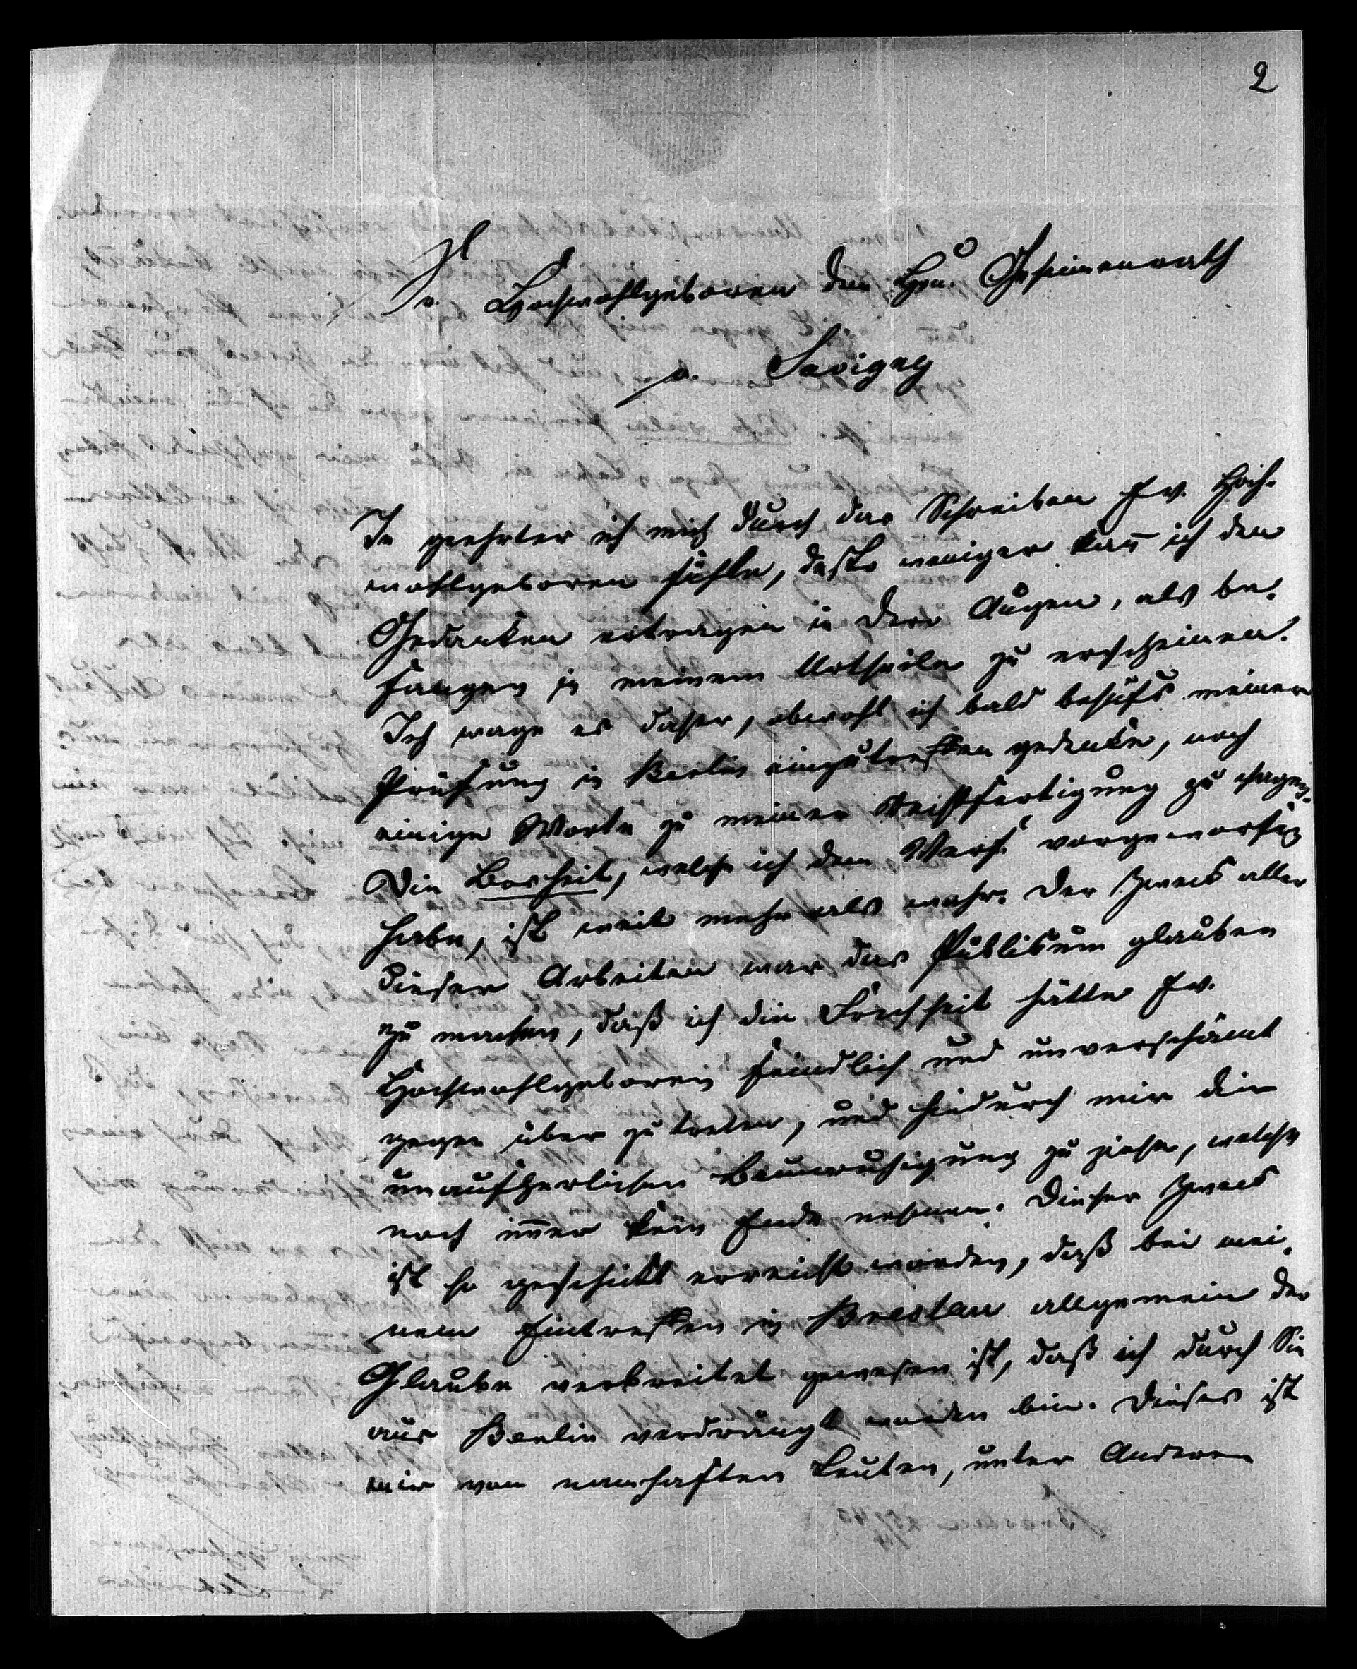 2
Sr. Hochwohlgeboren dem Hrn. Geheimenrath
v. Savigny
Je geehrter ich mich durch das Schreiben Ew. Hoch-
wohlgeboren fühle, desto weniger kann ich den
Gedanken ertragen in Dero Augen, als be-
fangen in meinem Urtheile zu erscheinen.
Ich wage es daher, obwohl ich bald behufs meiner
Prüfung in Berlin einzutreffen gedenke, noch
einige Worte zu meiner Rechtfertigung zu sagen.
Die Bosheit, welche ich dem Verf. vorgeworfen
habe, ist weit mehr als wahr. Der Zweck aller
dieser Arbeiten war das Publikum glauben
zu machen, daß ich die Frechheit hätte Ew.
Hochwohlgeboren feindlich und unverschämt
gegen über zu treten, und hiedurch mir die
unaufhörlichen Beunruhigung zu ziehen, welche
noch immer kein Ende nehmen. Dieser Zweck
ist so geschickt erreicht worden, daß bei mei-
nem Eintreffen in Breslau allgemein der
Glaube verbreitet gewesen ist, daß ich durch Sie
aus Berlin verdrängt worden bin. Dieses ist
mir von namhaften Leuten, unter Anderen